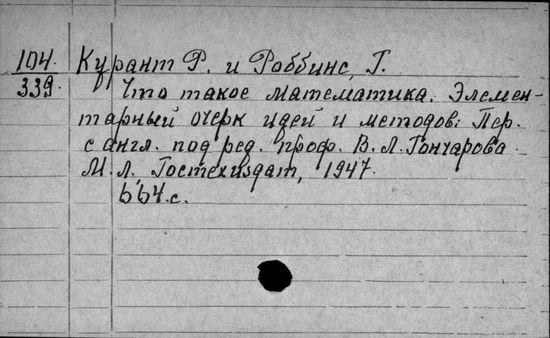 104. Курант Р. и Роббинс, Г.
339. Что такое математика. Элемен-
тарный очерк идей и методов. Пер.
с англ. под ред. проф. В. Л. Гончарова.
М. Л. Гостехиздат, 1947.
664 с.